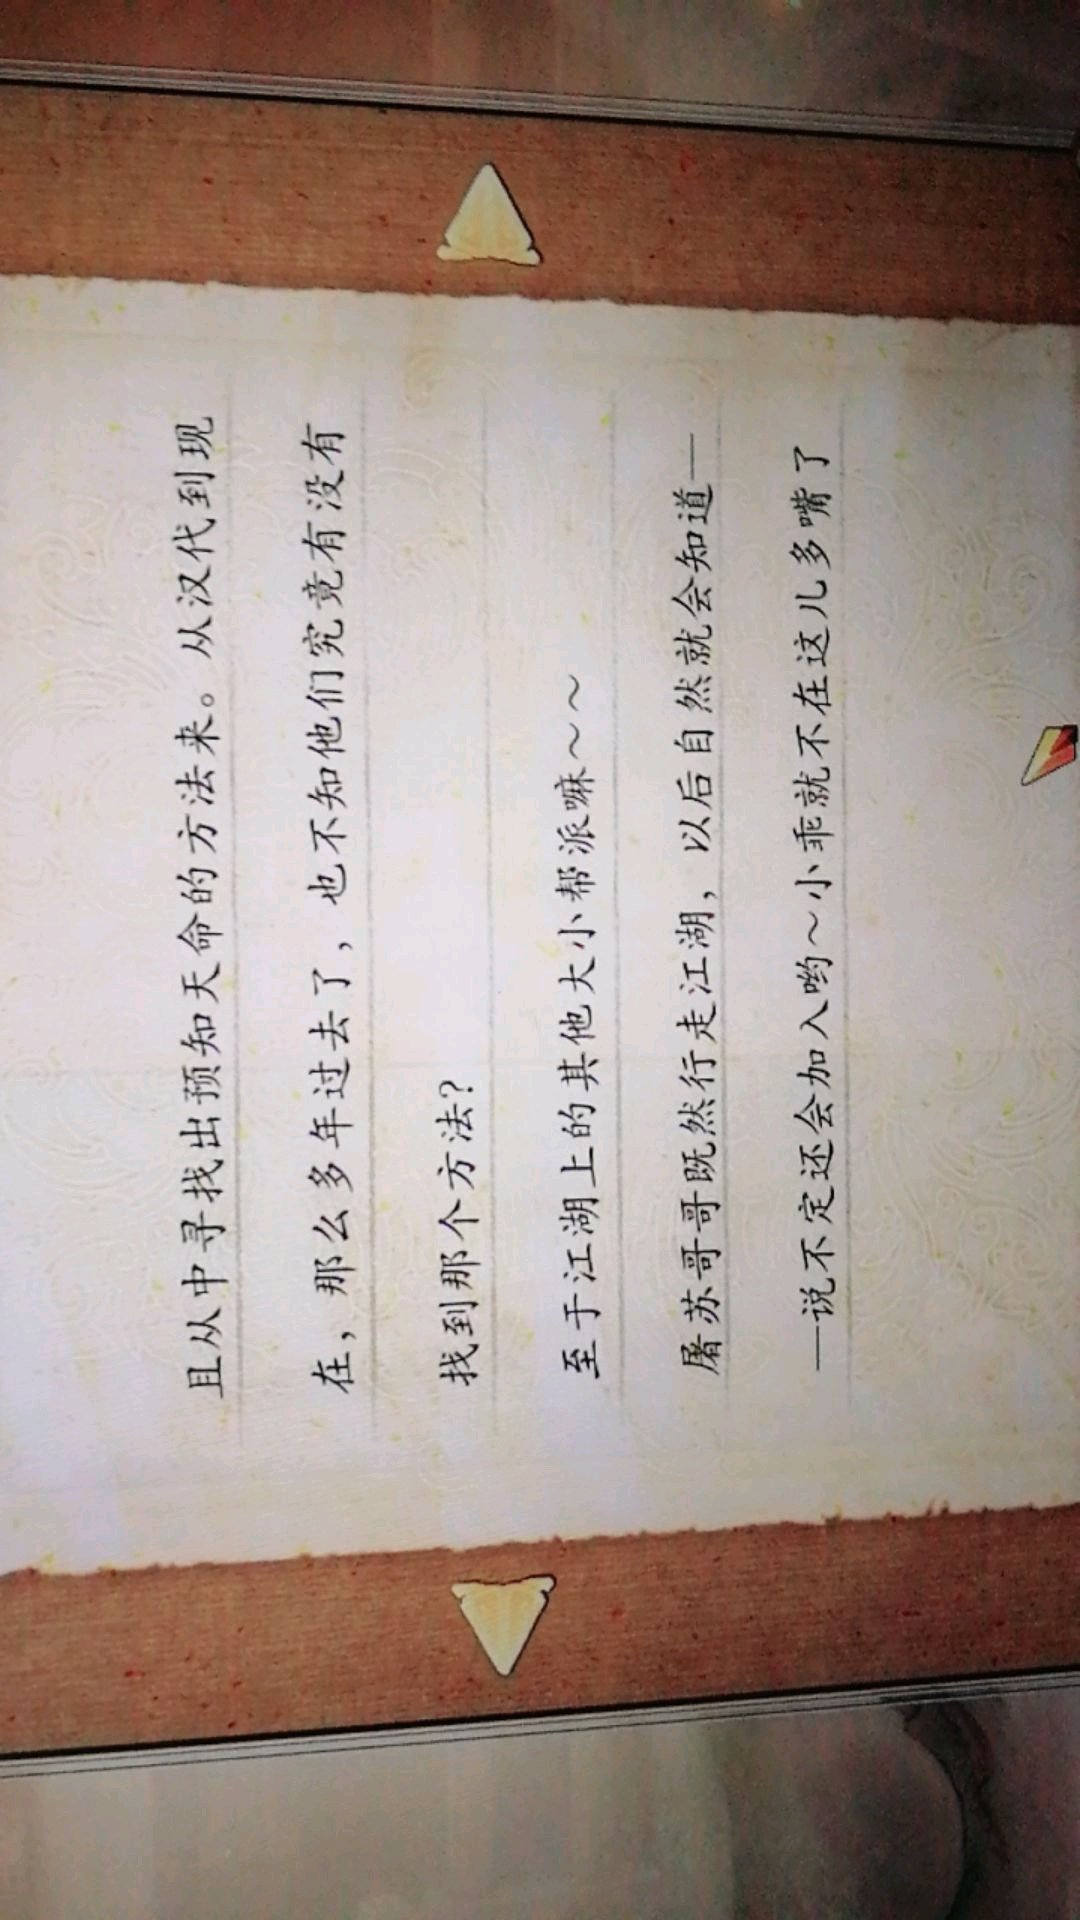 且从中寻找出预知天命的方法来。从汉代到现
在，那么多年过去了，也不知他们究竟有没有
找到那个方法？
至于江湖上的其他大小帮派嘛～～
屠苏哥哥既然行走江湖，以后自然就会知道—
—说不定还会加入哟～小乖就不在这儿多嘴了